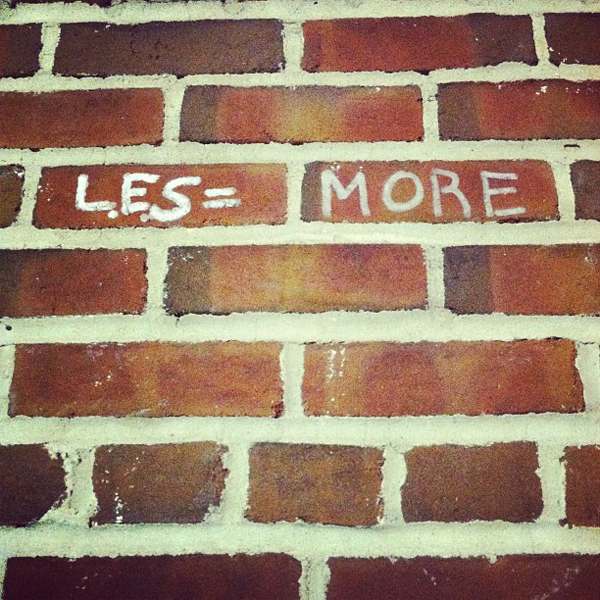 L.E.S = MORE